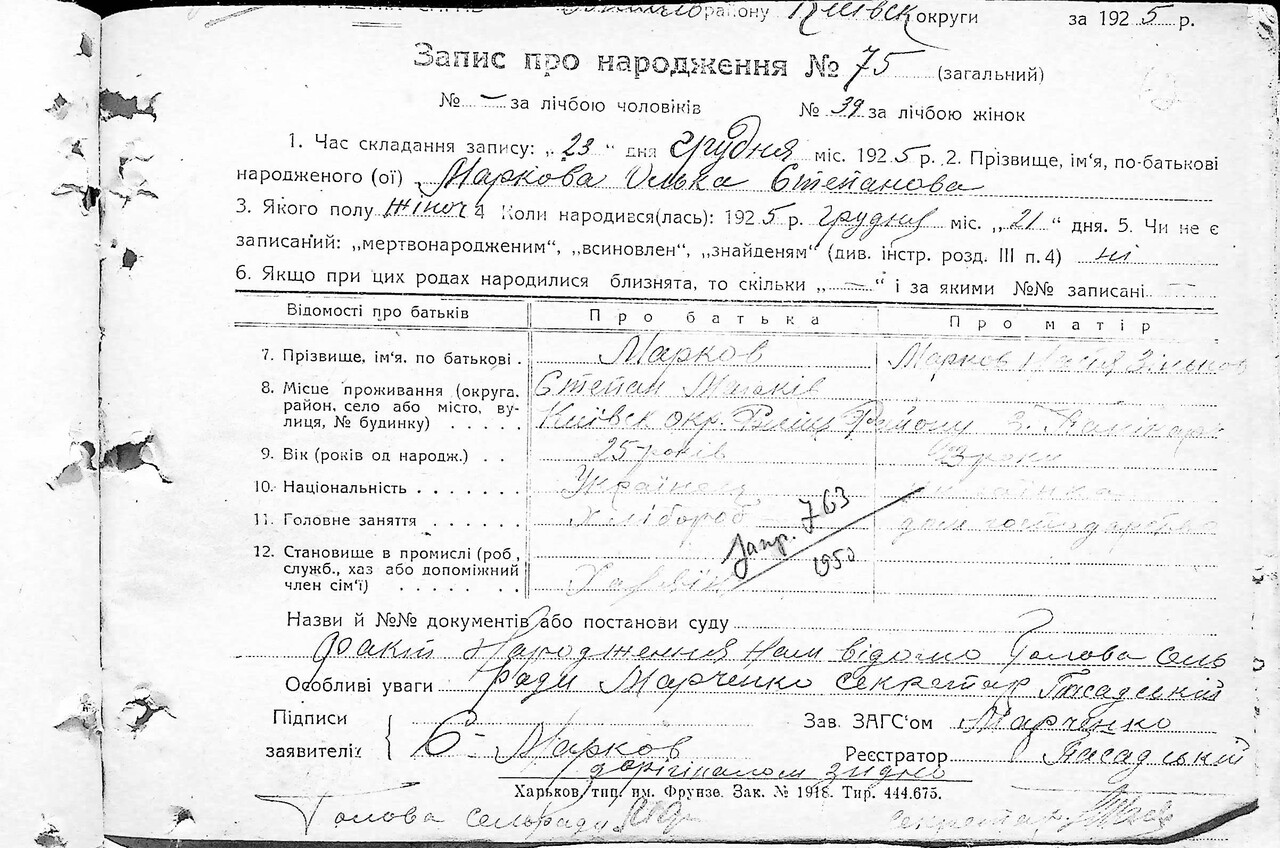 району Київск округи за 1925 р.
Запис про народження № 75 (загальний)
№ – за лічбою чоловіків № 39 за лічбою жінок
1. Час складання запису: „ 23 “ дня Грудня міс. 1925 р. 2. Прізвище, ім'я, по-батькові
народженого (ої) Маркова Олька Степанова
3. Якого полу жіноч 4 Коли народився(лась): 1925 р. Грудня міс. „ 21 “ дня. 5. Чи не є
записаний: „мертвонародженим“, „всиновлен“, „знайденям“ (див. інстр. розд. III п. 4) ні
6. Якщо при цих родах народилися близнята, то скільки „ — “ і за якими №№ записані
Відомості про батьків Про батька Про матір
7. Прізвище, ім'я. по батькові . Марков Марков
8. Місце проживання (округа, Степан
район, село або місто, ву-
лиця, № будинку) . . . . . Київск окр. Району
9. Вік (років од народж.) . . 25 років 23 роки
10. Національність . . . . . . . Українец Українка
11. Головне заняття . . . . . . Хлібороб дом господарство
12. Становище в промислі (роб,
служб., хаз або допоміжний
член сім'ї) . . . . . . Хазяїн
Запр. 763
1950
Назви й №№ документів або постанови суду
Факт Народження Нам відомо Голова сель
Особливі уваги Ради Марченко секретар Пасадський
Підписи Зав. ЗАГС'ом Марченко
заявителіг С Марков Реєстратор Пасадський
з орігіналом згидно
Харьков, тип. им. Фрунзе. Зак. № 1918. Тир. 444.675.
Голова Сельради секретар